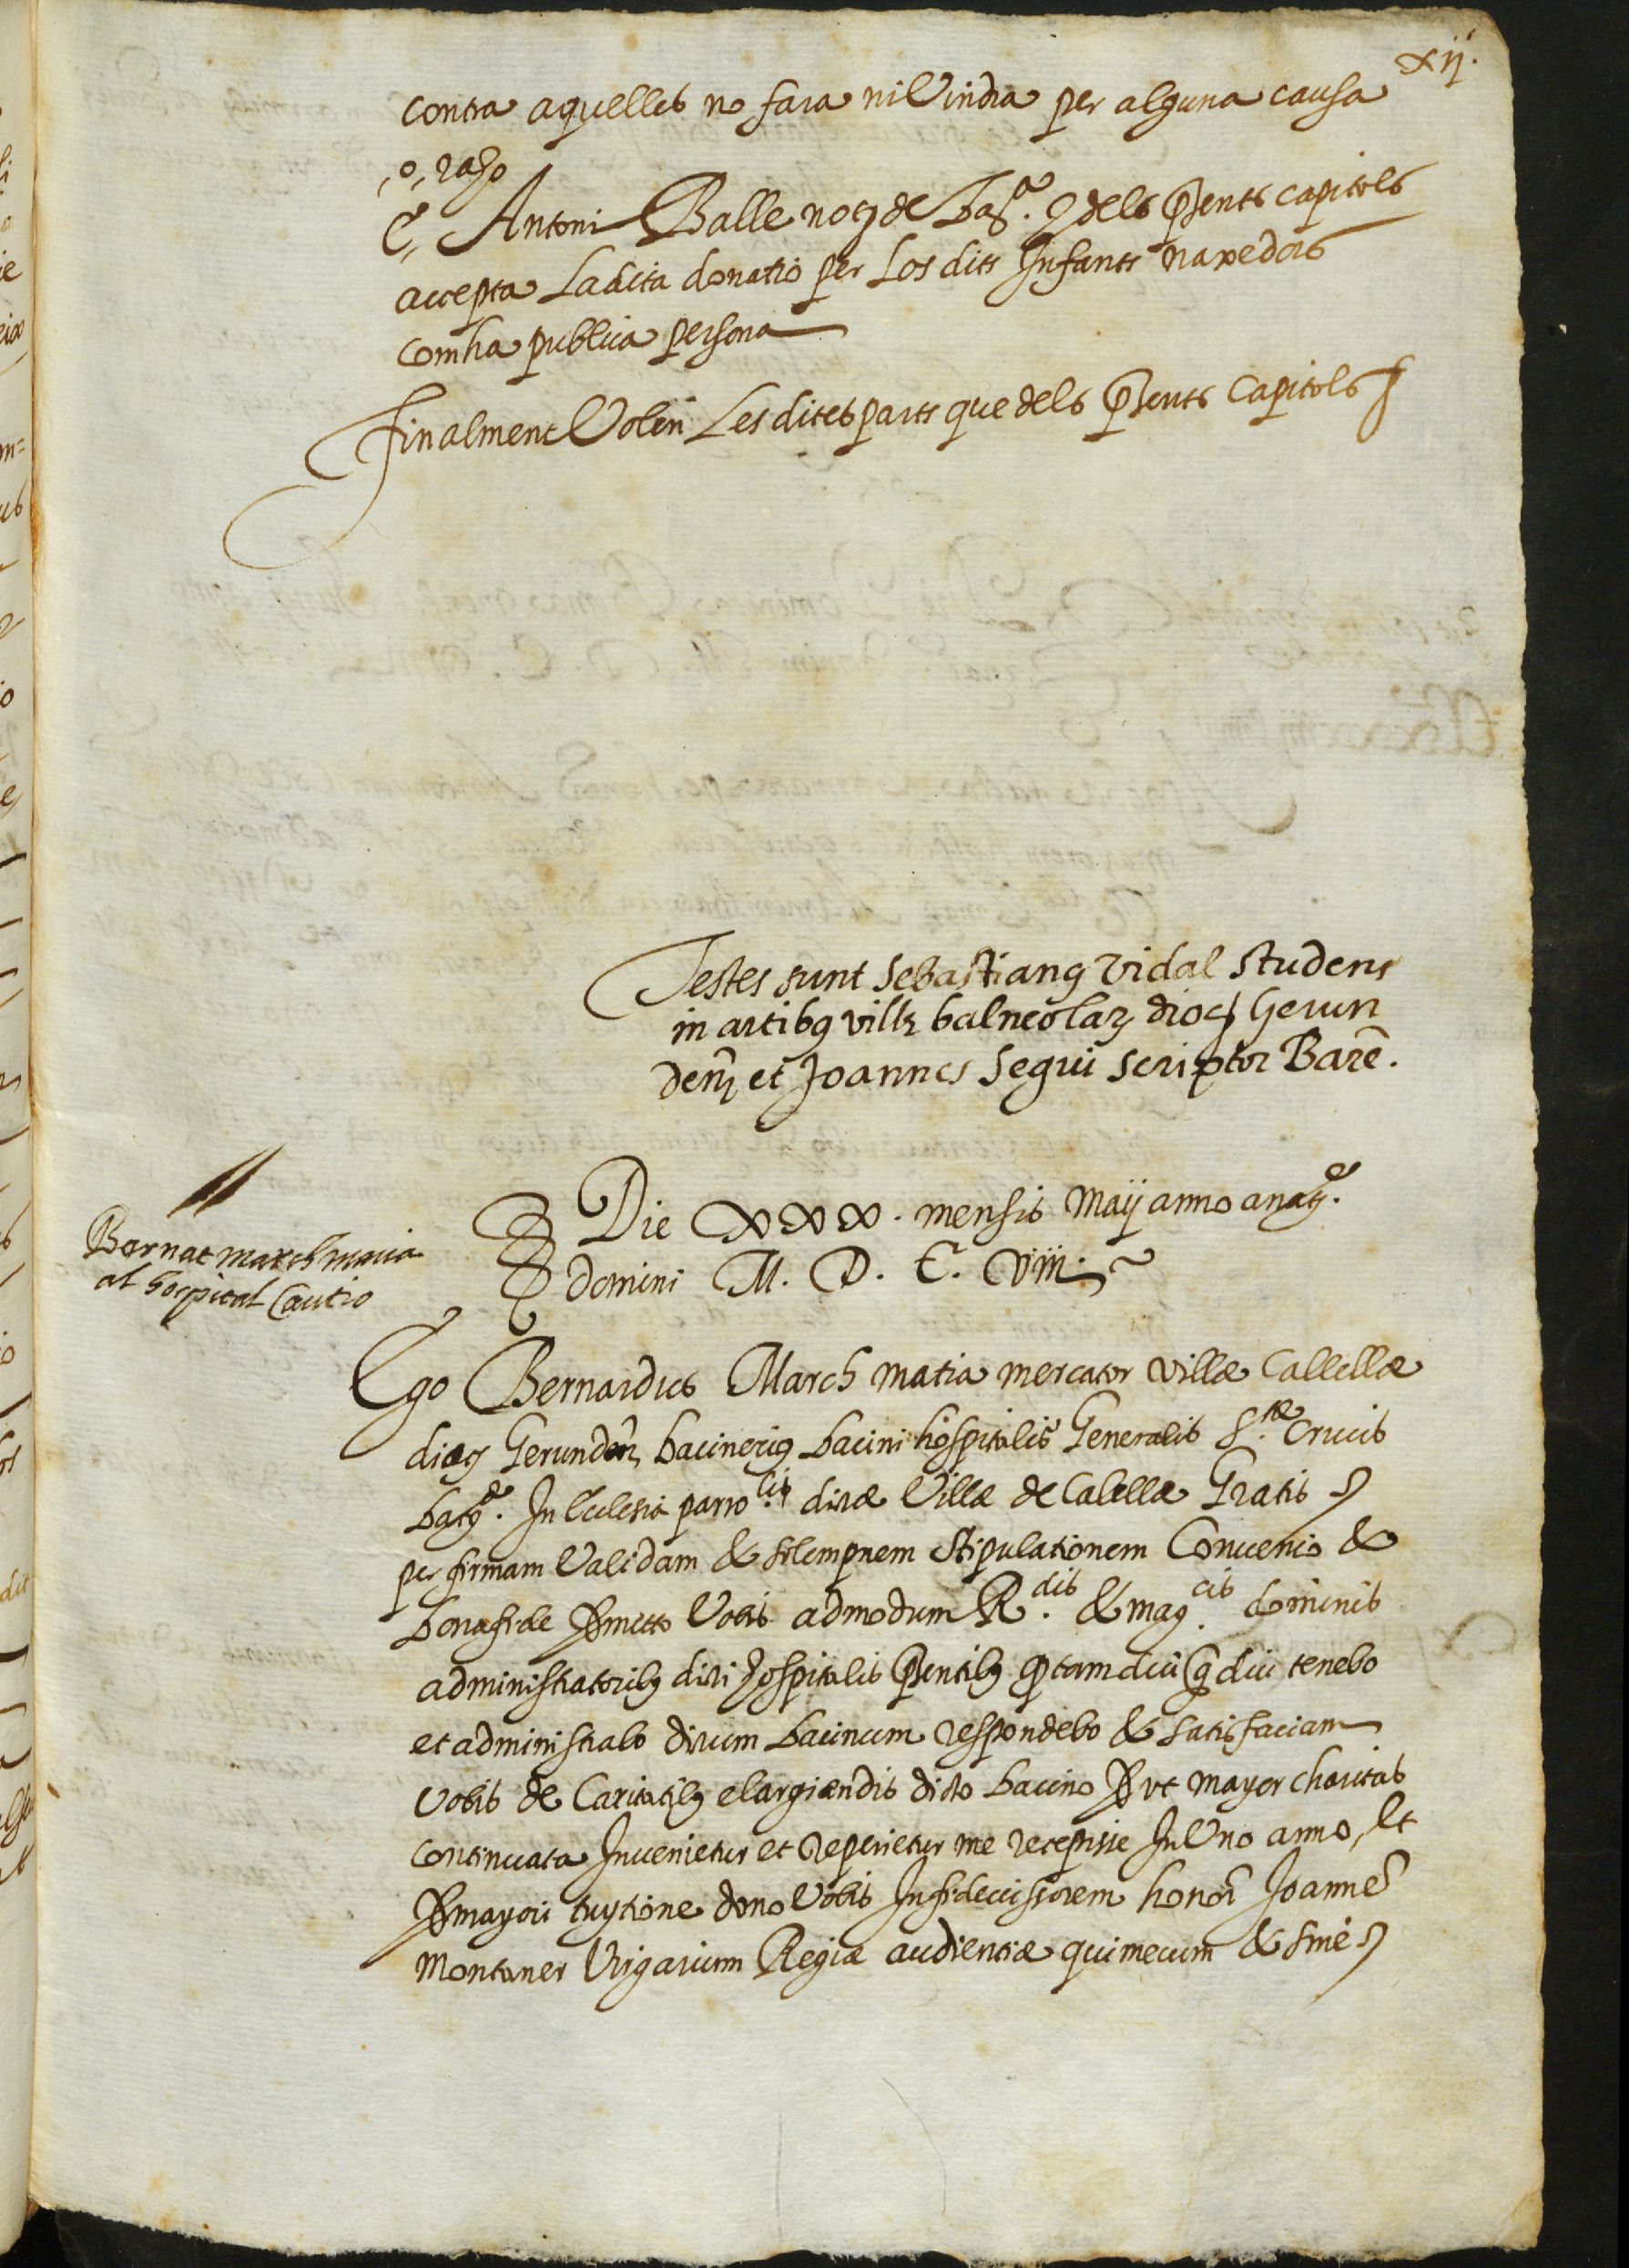 xij.
contra aquelles no fara ni Vindra per alguna causa
,o, raho
E, Antoni Balle not9 de Bar.ª 9 dels p̃sents capitols
accepta La dita donatio per Los dits Infants naxedors
com ha publica persona
Finalment Volen Les dites parts que dels p̃sents Capitols
Testes sunt Sebastian9 Vidal studens
in artib9 villę balneolaꝝ dioc̨ Gerun
deñ et Joannes Segui scriptor Barē.
Die XXX. mensis Maij anno a nat.e
domini M. D. C. Viij.
Bernat march macia
al hospital Cautio
Ego Bernardus March matia mercator villæ Callellæ
diocs Gerundeñ bacineri9 bacini hospitalis Generalis S.tæ Crucis
bar.e In Ecclesia parro.lis dictæ Villæ de Calellæ Gratis
per firmam Validam & solempnem stipulationem Convenio &
bona fide ꝓmitto Vobis admodum R.dis & mag.cis dominis
administratorib9 dicti hospitalis p̃sentib9 ꝙ tam diu q̃ diu tenebo
et administrabo dictum bacinum respondebo & satisfaciam
Vobis de Caritatib9 elargiendis dicto bacino ꝓut mayor charitas
continuata Invenietur et reperietur me recepisse In Vno anno, Et
ꝓ mayori tuytione dono Vobis In fideiussorem honoř Joannē
Montaner Virgarium Regiæ audientiæ qui mecum & sine